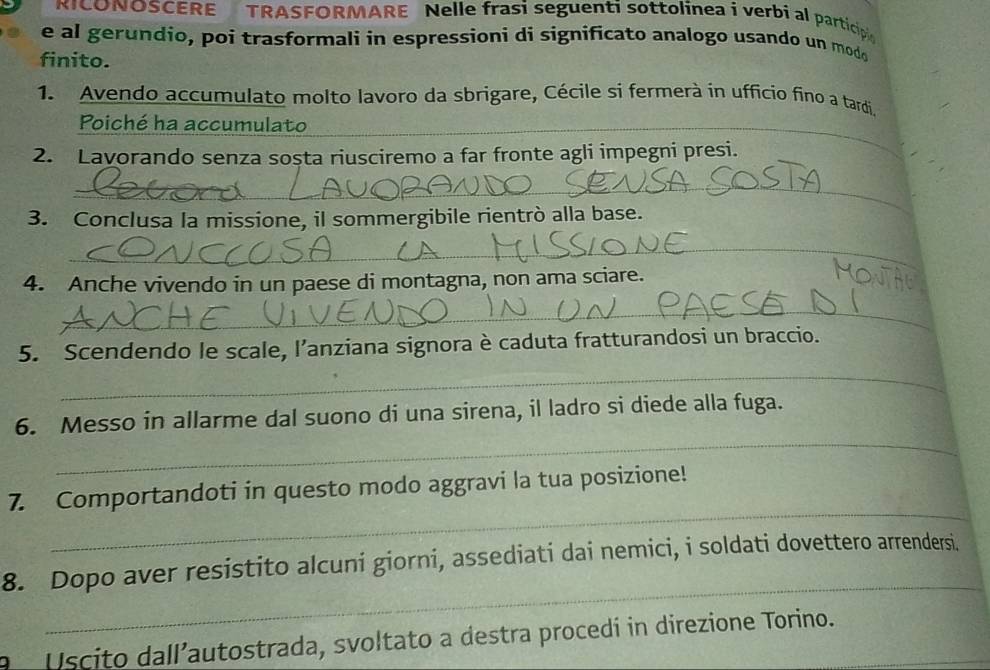 RICONOSCERE TRASFORMARE Nelle frasi seguenti sottolinea i verbi al participio
e al gerundio, poi trasformali in espressioni di significato analogo usando un modo
finito.
1. Avendo accumulato molto lavoro da sbrigare, Cécile si fermerà in ufficio fino a tardi.
Poiché ha accumulato
2. Lavorando senza sosta riusciremo a far fronte agli impegni presi.
LAVORANDO SENSA SOSTA
3. Conclusa la missione, il sommergibile rientrò alla base.
CONCLUSA LA MISSIONE
4. Anche vivendo in un paese di montagna, non ama sciare.
ANCHE VIVENDO IN UN PAESE DI MONTAG
5. Scendendo le scale, l'anziana signora è caduta fratturandosi un braccio.
6. Messo in allarme dal suono di una sirena, il ladro si diede alla fuga.
7. Comportandoti in questo modo aggravi la tua posizione!
8. Dopo aver resistito alcuni giorni, assediati dai nemici, i soldati dovettero arrendersi.
9. Uscito dall'autostrada, svoltato a destra procedi in direzione Torino.